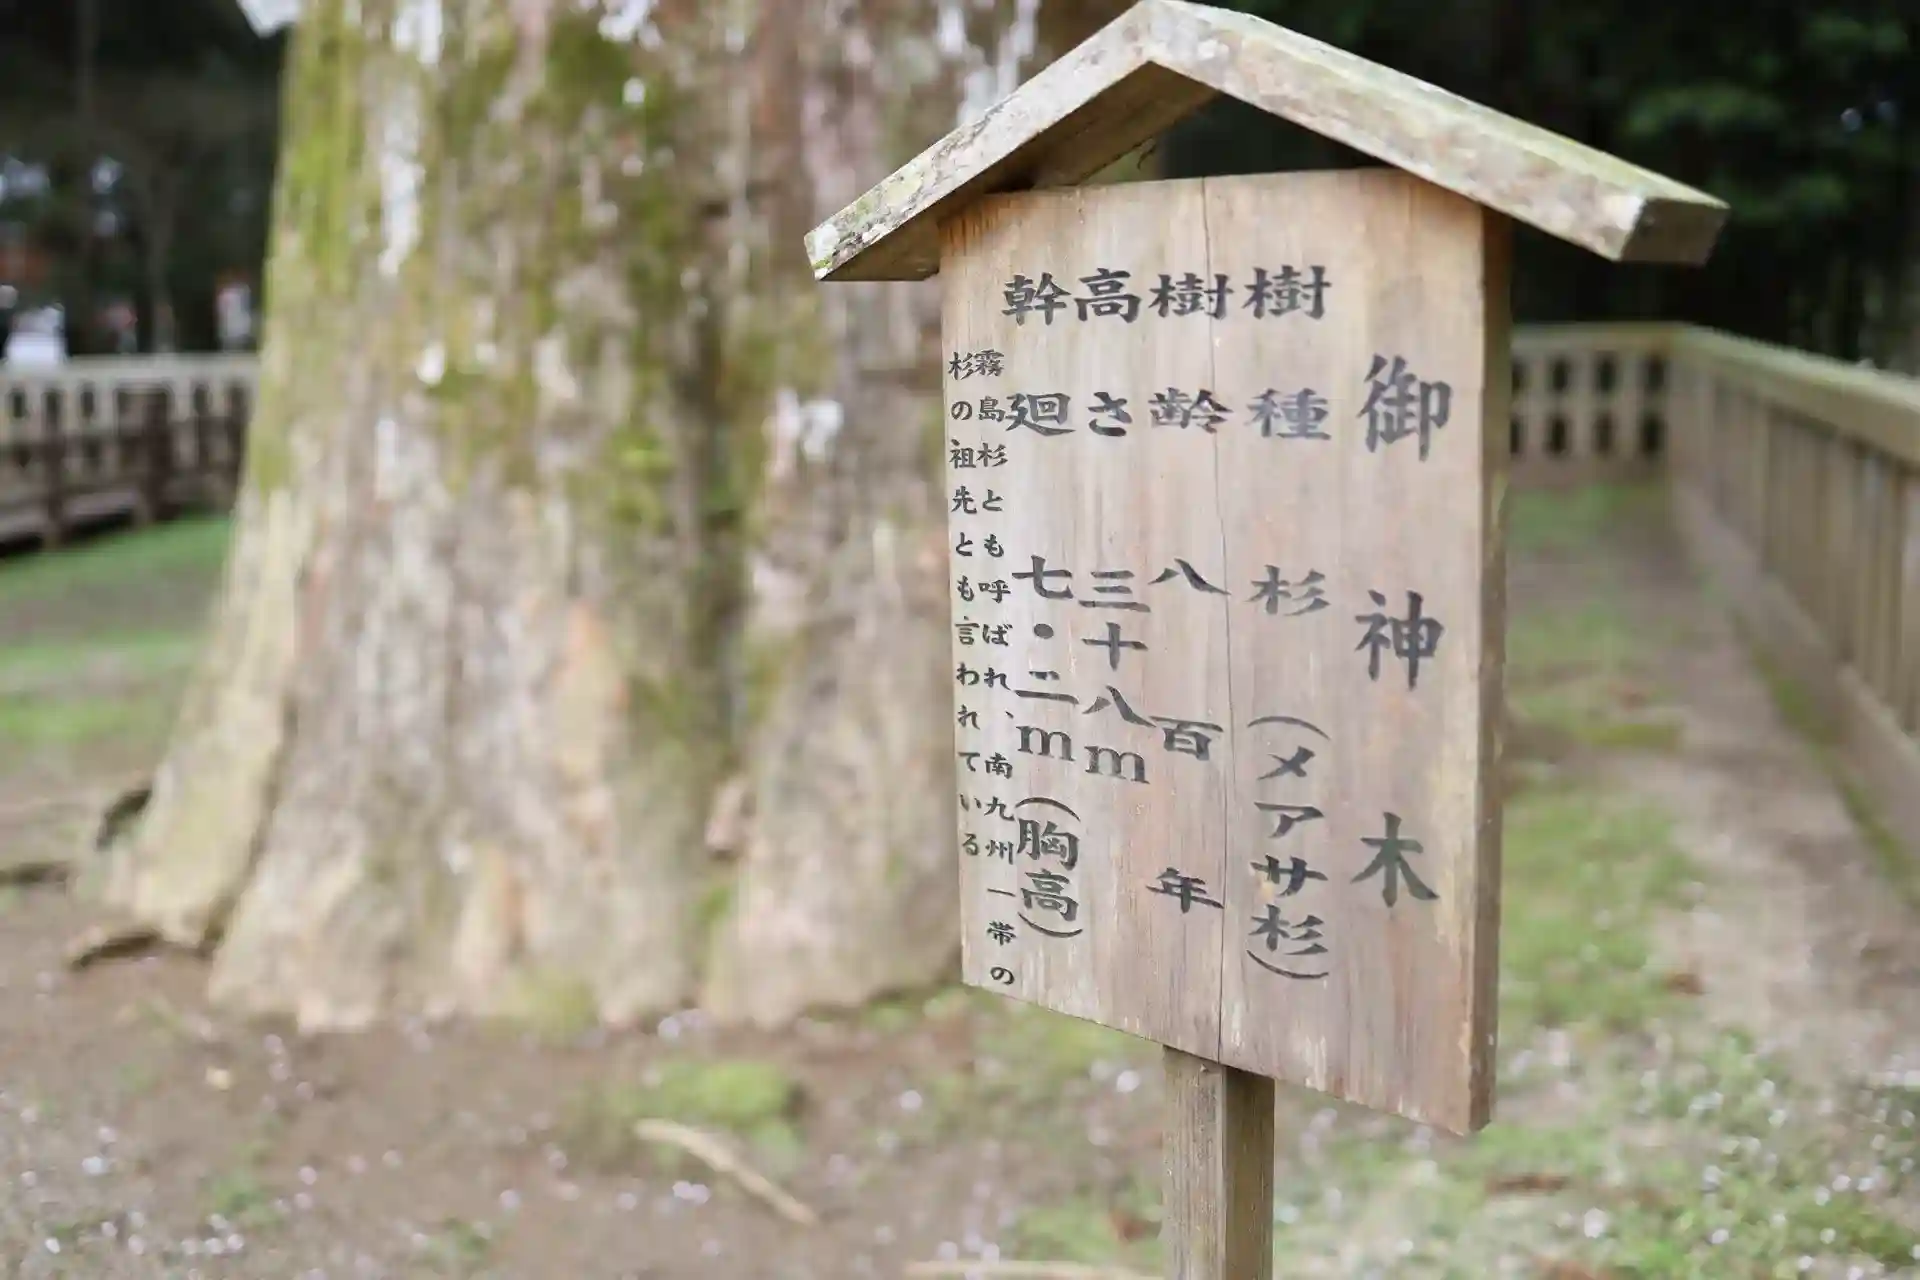 御神木
樹種 杉(メアサ杉)
樹齢 八百年
高さ 三十八m
幹廻 七・二m(胸高)
霧島杉とも呼ばれ、南九州一帯の
杉の祖先とも言われている